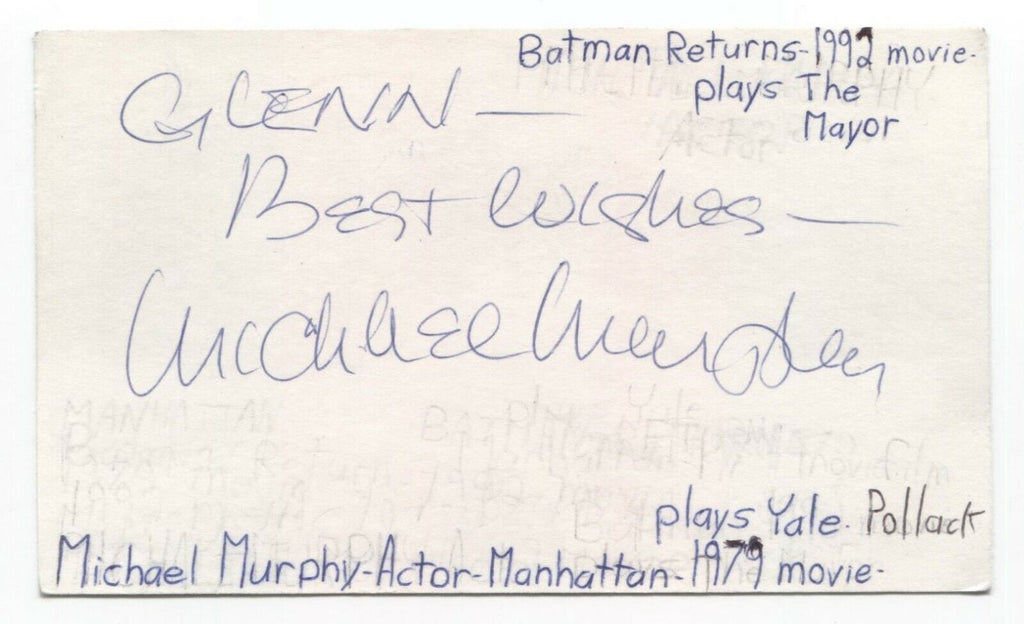 Batman Returns-1992 movie-
plays The
Mayor
GLENN —
Best Wishes —
Michael Murphy
plays Yale. Pollack
Michael Murphy-Actor-Manhattan-1979 movie-